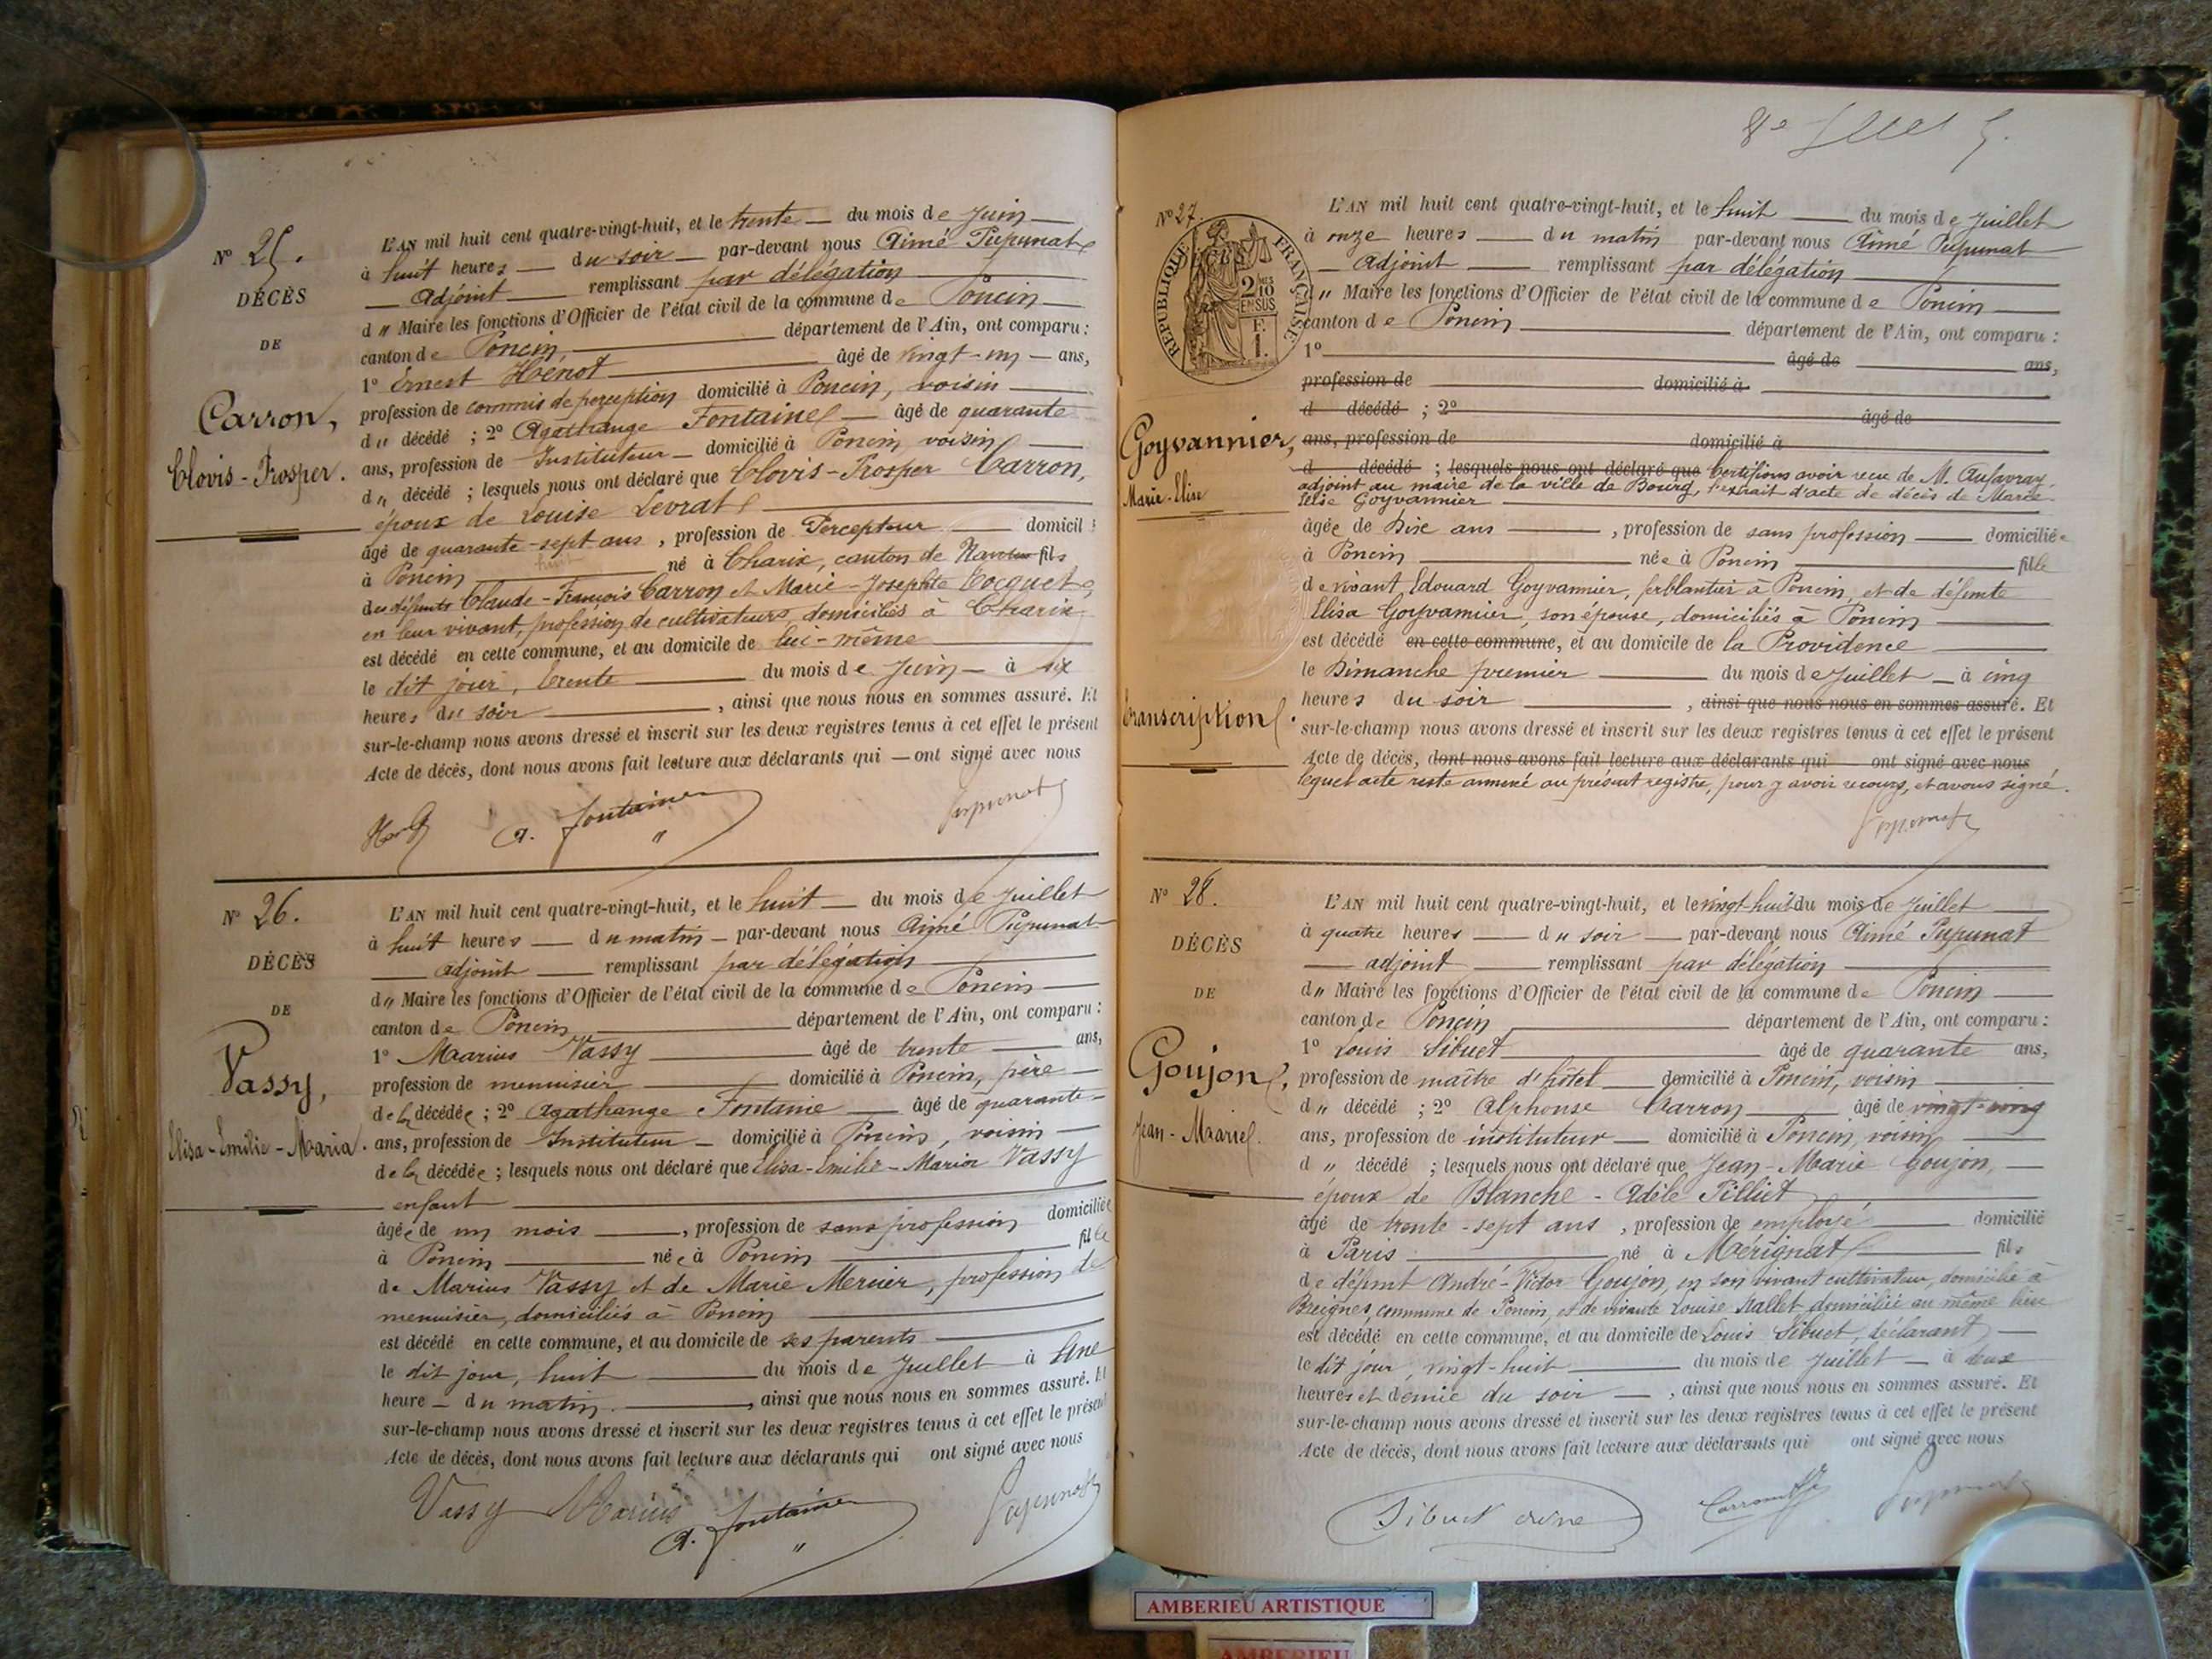 N° 25.
DÉCÈS
DE
Carron,
Clovis-Prosper.
L'AN mil huit cent quatre-vingt-huit, et le trente du mois de Juin
à huit heures du soir par-devant nous Aimé Pupunat
Adjoint remplissant par délégation
d" Maire les fonctions d'Officier de l'état civil de la commune de Poncin
canton de Poncin département de l'Ain, ont comparu :
1° Ernest Hénot âgé de vingt-un ans,
profession de commis de perception domicilié à Poncin, voisin
d" décédé ; 2° Agathange Fontaine âgé de quarante
ans, profession de Instituteur domicilié à Poncin, voisin
d" décédé ; lesquels nous ont déclaré que Clovis-Prosper Carron,
époux de Louise Levrat
âgé de quarante-sept ans, profession de Percepteur domicilié
à Poncin né à Charix, canton de Nantua fils
des défunts Claude-François Carron et Marie-Josephte Cocquet,
en leur vivant, profession de cultivateurs domiciliés à Charix
est décédé en cette commune, et au domicile de lui-même
le dit jour, trente du mois de Juin à six
heures du soir, ainsi que nous nous en sommes assuré. Et
sur-le-champ nous avons dressé et inscrit sur les deux registres tenus à cet effet le présent
Acte de décès, dont nous avons fait lecture aux déclarants qui ont signé avec nous
A. Fontaine Pupunat
N° 26.
DÉCÈS
DE
Vassy,
Elisa-Emilie-Maria.
L'AN mil huit cent quatre-vingt-huit, et le huit du mois de Juillet
à huit heures du matin par-devant nous Aimé Pupunat
adjoint remplissant par délégation
d" Maire les fonctions d'Officier de l'état civil de la commune de Poncin
canton de Poncin département de l'Ain, ont comparu :
1° Marius Vassy âgé de trente ans,
profession de menuisier domicilié à Poncin, père
de la décédée ; 2° Agathange Fontaine âgé de quarante
ans, profession de Instituteur domicilié à Poncin, voisin
de la décédée ; lesquels nous ont déclaré que Elisa-Emilie-Maria Vassy
enfant
âgée de un mois, profession de sans profession domiciliée
à Poncin née à Poncin fille
de Marius Vassy et de Marie Mercier, profession de
menuisier, domiciliés à Poncin
est décédé en cette commune, et au domicile de ses parents
le dit jour, huit du mois de Juillet à Une
heure du matin, ainsi que nous nous en sommes assuré. Et
sur-le-champ nous avons dressé et inscrit sur les deux registres tenus à cet effet le présent
Acte de décès, dont nous avons fait lecture aux déclarants qui ont signé avec nous
Vassy Marius A. Fontaine Pupunat
N° 27.
RÉPUBLIQUE FRANÇAISE
2/10 EN SUS
F. 1.
Goyvannier,
Marie-Elise
transcription.
L'AN mil huit cent quatre-vingt-huit, et le huit du mois de Juillet
à onze heures du matin par-devant nous Aimé Pupunat
Adjoint remplissant par délégation
d" Maire les fonctions d'Officier de l'état civil de la commune de Poncin
canton de Poncin département de l'Ain, ont comparu :
1° âgé de ans,
profession de domicilié à
d décédé ; 2° âgé de
ans, profession de domicilié à
d décédé ; lesquels nous ont déclaré que Certifions avoir reçu de M. Aufavray,
adjoint au maire de la ville de Bourg, l'extrait d'acte de décès de Marie
Elise Goyvannier
âgée de dix ans, profession de sans profession domiciliée
à Poncin née à Poncin fille
de vivant Edouard Goyvannier, ferblantier à Poncin, et de défunte
Elisa Goyvannier, son épouse, domiciliés à Poncin
est décédé en cette commune, et au domicile de la Providence
le Dimanche premier du mois de Juillet à cinq
heures du soir, ainsi que nous nous en sommes assuré. Et
sur-le-champ nous avons dressé et inscrit sur les deux registres tenus à cet effet le présent
Acte de décès, dont nous avons fait lecture aux déclarants qui ont signé avec nous
lequel acte reste annexé au présent registre, pour y avoir recours, et avons signé.
Pupunat
N° 28.
DÉCÈS
DE
Goujon,
Jean-Marie.
L'AN mil huit cent quatre-vingt-huit, et le vingt-huit du mois de Juillet
à quatre heures du soir par-devant nous Aimé Pupunat
adjoint remplissant par délégation
d" Maire les fonctions d'Officier de l'état civil de la commune de Poncin
canton de Poncin département de l'Ain, ont comparu :
1° Louis Sibuet âgé de quarante ans,
profession de maître d'hôtel domicilié à Poncin, voisin
d" décédé ; 2° Alphonse Carron âgé de vingt-cinq
ans, profession de instituteur domicilié à Poncin, voisin
d" décédé ; lesquels nous ont déclaré que Jean-Marie Goujon,
époux de Blanche-Adèle Pilliet
âgé de trente-sept ans, profession de employé domicilié
à Paris né à Mérignat fils
de défunt André-Victor Goujon, en son vivant cultivateur, domicilié à
Breignes, commune de Poncin, et de vivante Louise Nallet, domiciliée au même lieu
est décédé en cette commune, et au domicile de Louis Sibuet, déclarant
le dit jour, vingt-huit du mois de Juillet à deux
heures et demie du soir, ainsi que nous nous en sommes assuré. Et
sur-le-champ nous avons dressé et inscrit sur les deux registres tenus à cet effet le présent
Acte de décès, dont nous avons fait lecture aux déclarants qui ont signé avec nous
Sibuet Pupunat
AMBERIEU ARTISTIQUE
AMBERIEU